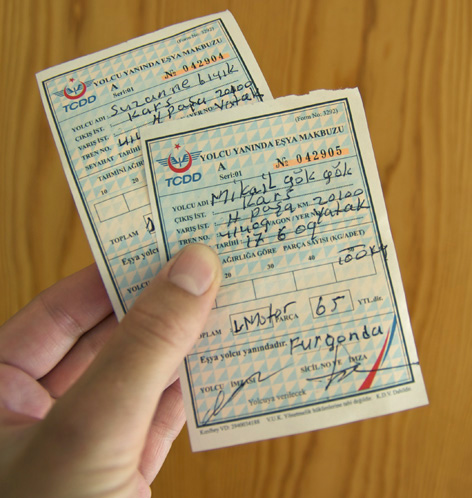 (Form No: 3202)
YOLCU YANINDA EŞYA MAKBUZU
A
Seri:01
№ 042904
TCDD
YOLCU ADI
ÇIKIŞ İST. Kars
VARIŞ İST. H paşa
TREN NO.
SEYAHAT TARİHİ
10
20
TOPLAM
Eşya yolcu
YOLCU
(Form No: 3202)
YOLCU YANINDA EŞYA MAKBUZU
A
Seri:01
№ 042905
TCDD
YOLCU ADI
ÇIKIŞ İST. Kars
VARIŞ İST. H paşa KM. 20100
TREN NO. VAGON / YER NO Yatak
TARİHİ 17 6 09
AĞIRLIĞA GÖRE PARÇA SAYISI (KG/ADET)
20
30
40
100 kg
TOPLAM Motor PARÇA 65 YTL.dir.
Eşya yolcu yanındadır. Furgonda
YOLCU İMZASI SİCİL NO VE İMZA
Yolcuya verilecek
V.U.K. Yönetmelik hükümlerine tabi değildir. K.D.V. Dahildir.